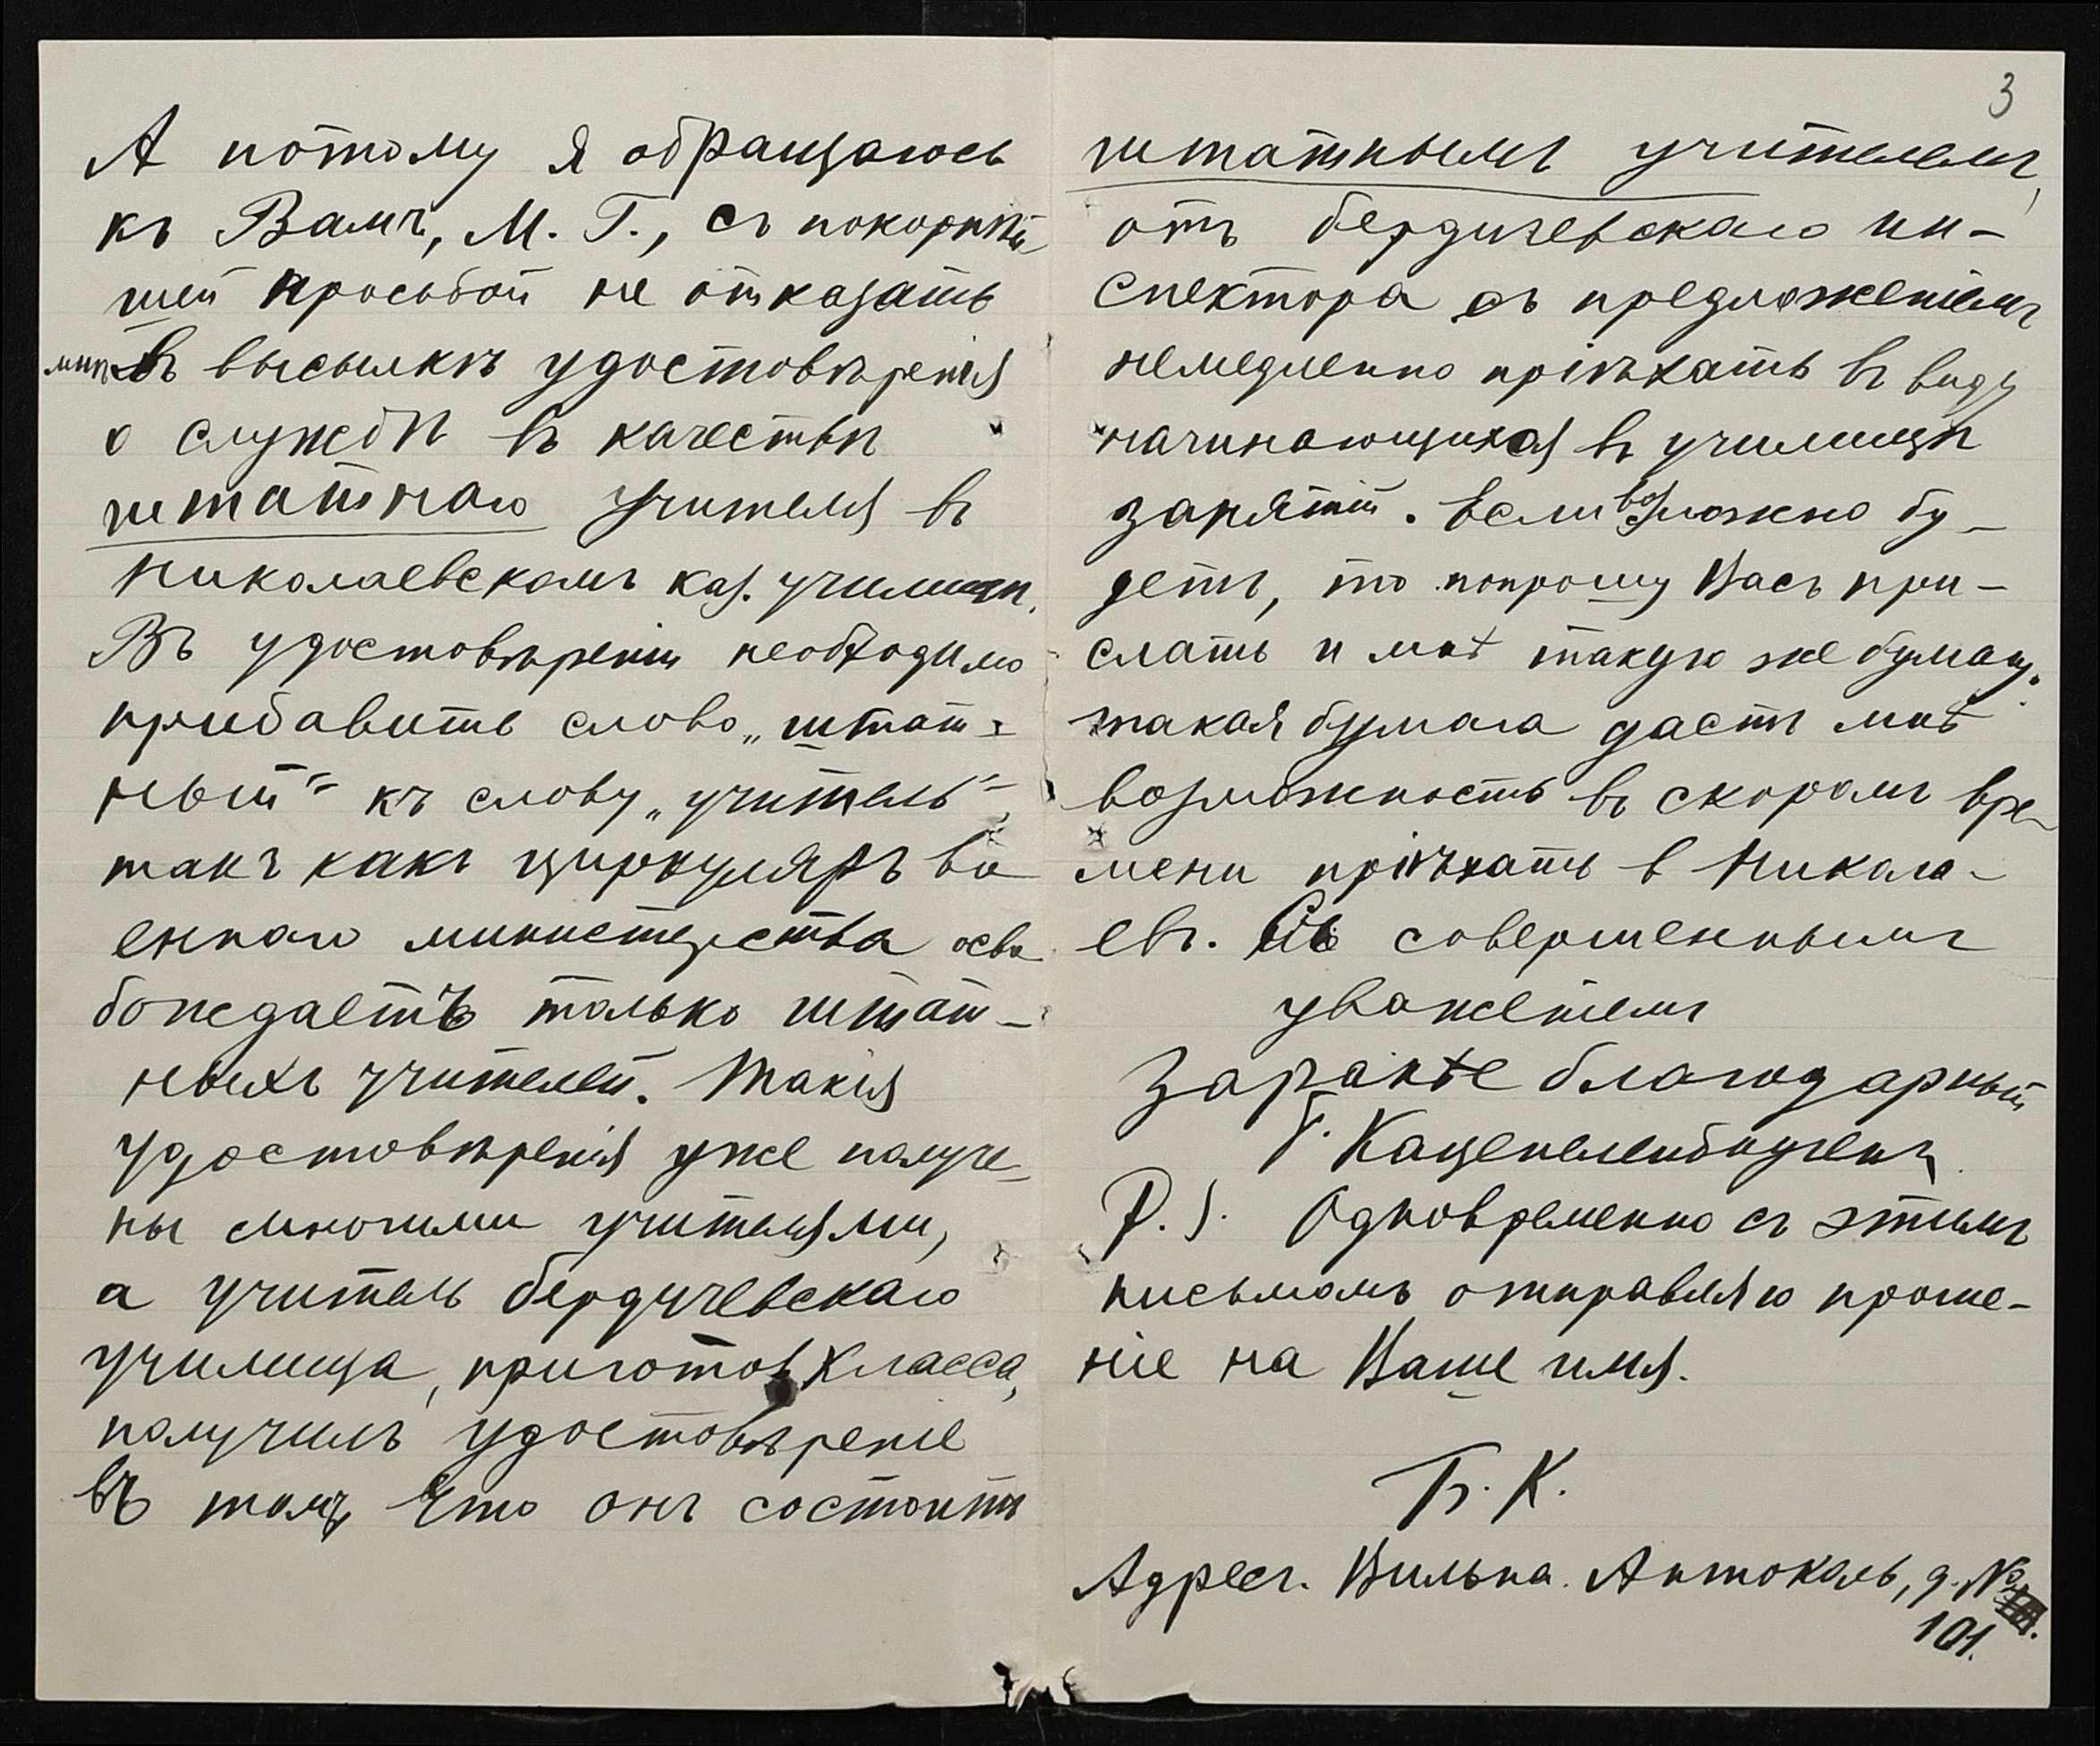 А потому я обращаюсь
къ Вамъ, М. Г., съ покорнѣй-
шей просьбой не отказать
мнѣ въ высылкѣ удостовѣренія
о службѣ въ качествѣ
штатнаго учителя въ
Николаевскомъ каз. училищѣ.
Въ удостовѣреніи необходимо
прибавить слово „штат-
ный“ къ слову „учитель“,
такъ какъ циркуляръ во
еннаго министерства осво
бождаетъ только штат-
ныхъ учителей. Такія
удостовѣренія уже получе-
ны многими учителями,
а учитель бердичевскаго
училища, приготов класса,
получилъ удостовѣреніе
въ томъ, что онъ состоитъ
3
штатнымъ учителемъ,
отъ бердичевскаго ин-
спектора съ предложеніемъ
немедленно пріѣхать въ виду
начинающихся въ училищѣ
занятій. Если возможно бу-
детъ, то попрошу Васъ при-
слать и мнѣ такую же бумагу.
такая бумага дастъ мнѣ
возможность въ скоромъ вре-
мени пріѣхать в Никола-
евъ. Съ совершеннымъ
уваженіемъ
заранѣе благодарный
Каценеленбогенъ
P.S. Одновременно съ этимъ
письмомъ отправляю проше-
ніе на Ваше имя.
Б. К.
Адресъ. Вильна. Антоколь, д. №
101.